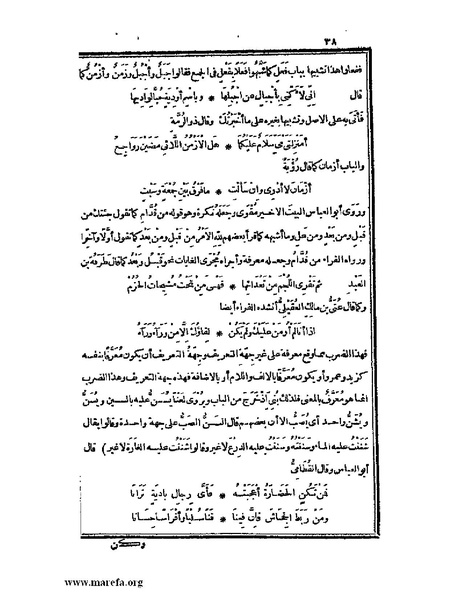 ٣٨
ففعلوا هذا تشبيها بباب فعل كما شبهوا أفعلا بفعل في الجمع فقالوا جبل وأجبل وزمن وأزمن كما
قال إني لأكني بأجبال عن اجبلها * وباسم أودية عن ذكر واديها
فأتى به على الاصل وتشبيها بغيره على ما أخبرتك وقال ذو الرمة
أمنزلتي مي سلام عليكما * هل الازمن اللائي مضين رواجع
والباب أزمان كما قال رؤبة
أزمان لا أدري وان سألت * ما فرق بين جمعة وسبت
وروى أبو العباس البيت الاخير مقوى وجعله نكرة وهو قوله من قدام كما تقول جئتك من
قبل ومن بعد ومن عل وما أشبهه كما قرأ بعضهم لله الأمر من قبل ومن بعد كما تقول أولا وآخرا
ورواه الفراء من قدام وجعله معرفة وأجراه مجرى الغايات نحو قبل وبعد كما قال طرفة بن
العبد ثم تفري اللجم من تعدائها * فهي من تحت مشيحات الحزم
وكما قال عتي بن مالك العقيلي أنشده الفراء أيضا
اذا أنا لم أومن عليك ولم يكن * لقاؤك إلا من وراء وراء
فهذا الضرب مما وقع معرفة على غير جهة التعريف وجهة التعريف أن يكون معرفا بنفسه
كزيد وعمرو أو يكون معرفا بالالف واللام أو بالاضافة فهذه جهة التعريف وهذا الضرب
انما هو معرف بالمعنى فلذلك بني اذ خرج من الباب ويروى لعنا يسن عليه بالسين ويسن
ويشن واحد أي يصب الا أن بعضهم قال السن الصب على جهة واحدة وقالوا يقال
شننت عليه الماء وسننته وسننت عليه الدرع لا غير وقالوا شننت عليه الغارة لا غير) قال
أبو العباس وقال القطامي
فمن تكن الحضارة أعجبته * فأي رجال بادية ترانا
ومن ربط الجحاش فان فينا * قنا سلبا وأفراسا حسانا
وكن
www.marefa.org